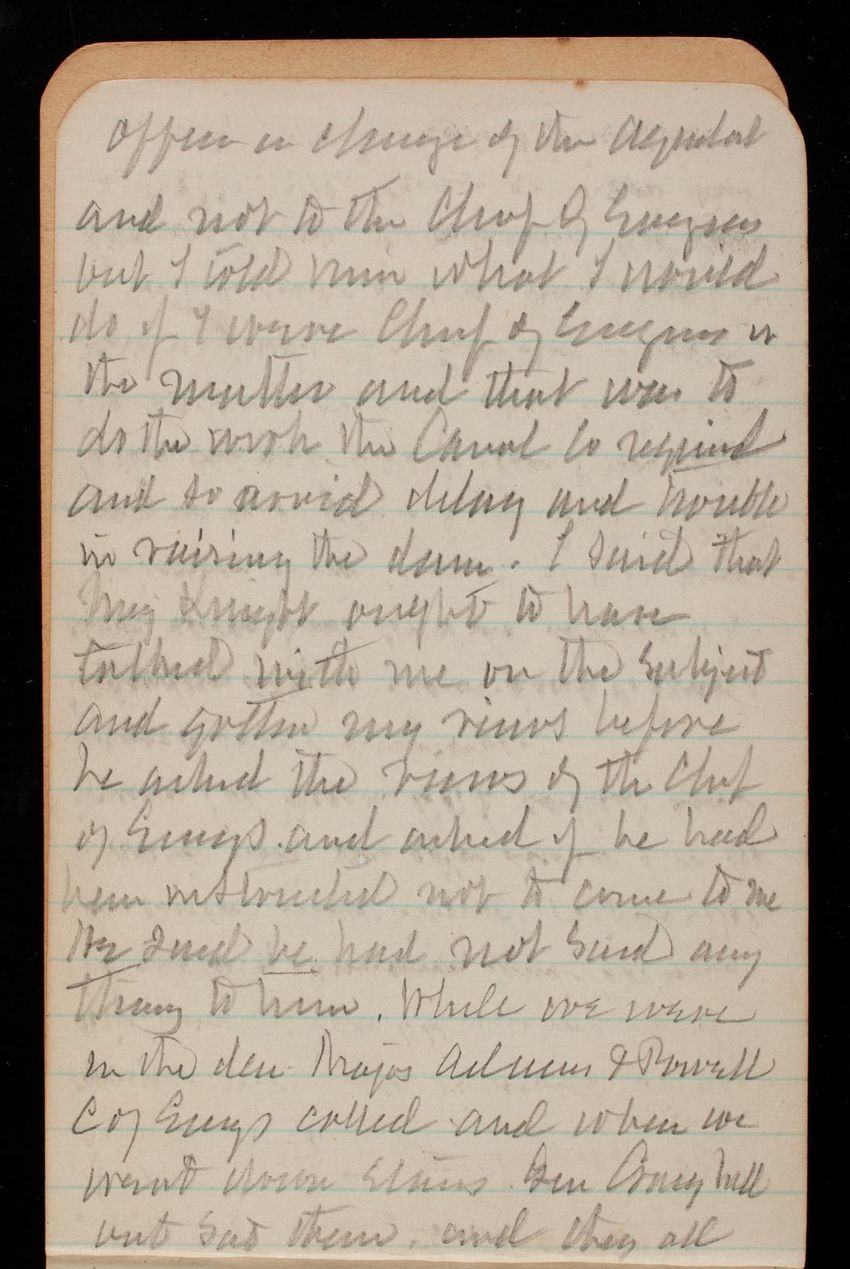 officer in charge of the Aqueduct
and not to the Chief of Engineers
but I told him what I would
do if I were Chief of Engineers in
the matter and that was to
do the work the Canal Co required
and so avoid delay and trouble
in raising the dam. I said that
Maj Knight ought to have
talked with me on the subject
and gotten my views before
he asked the views of the Chief
of Engrs. and asked if he had
been instructed not to come to me
He said he had not said any
thing to him. While we were
in the den Majos Adams & Powell
C of Engrs called and when we
went down stairs Gen Craighill
and they all